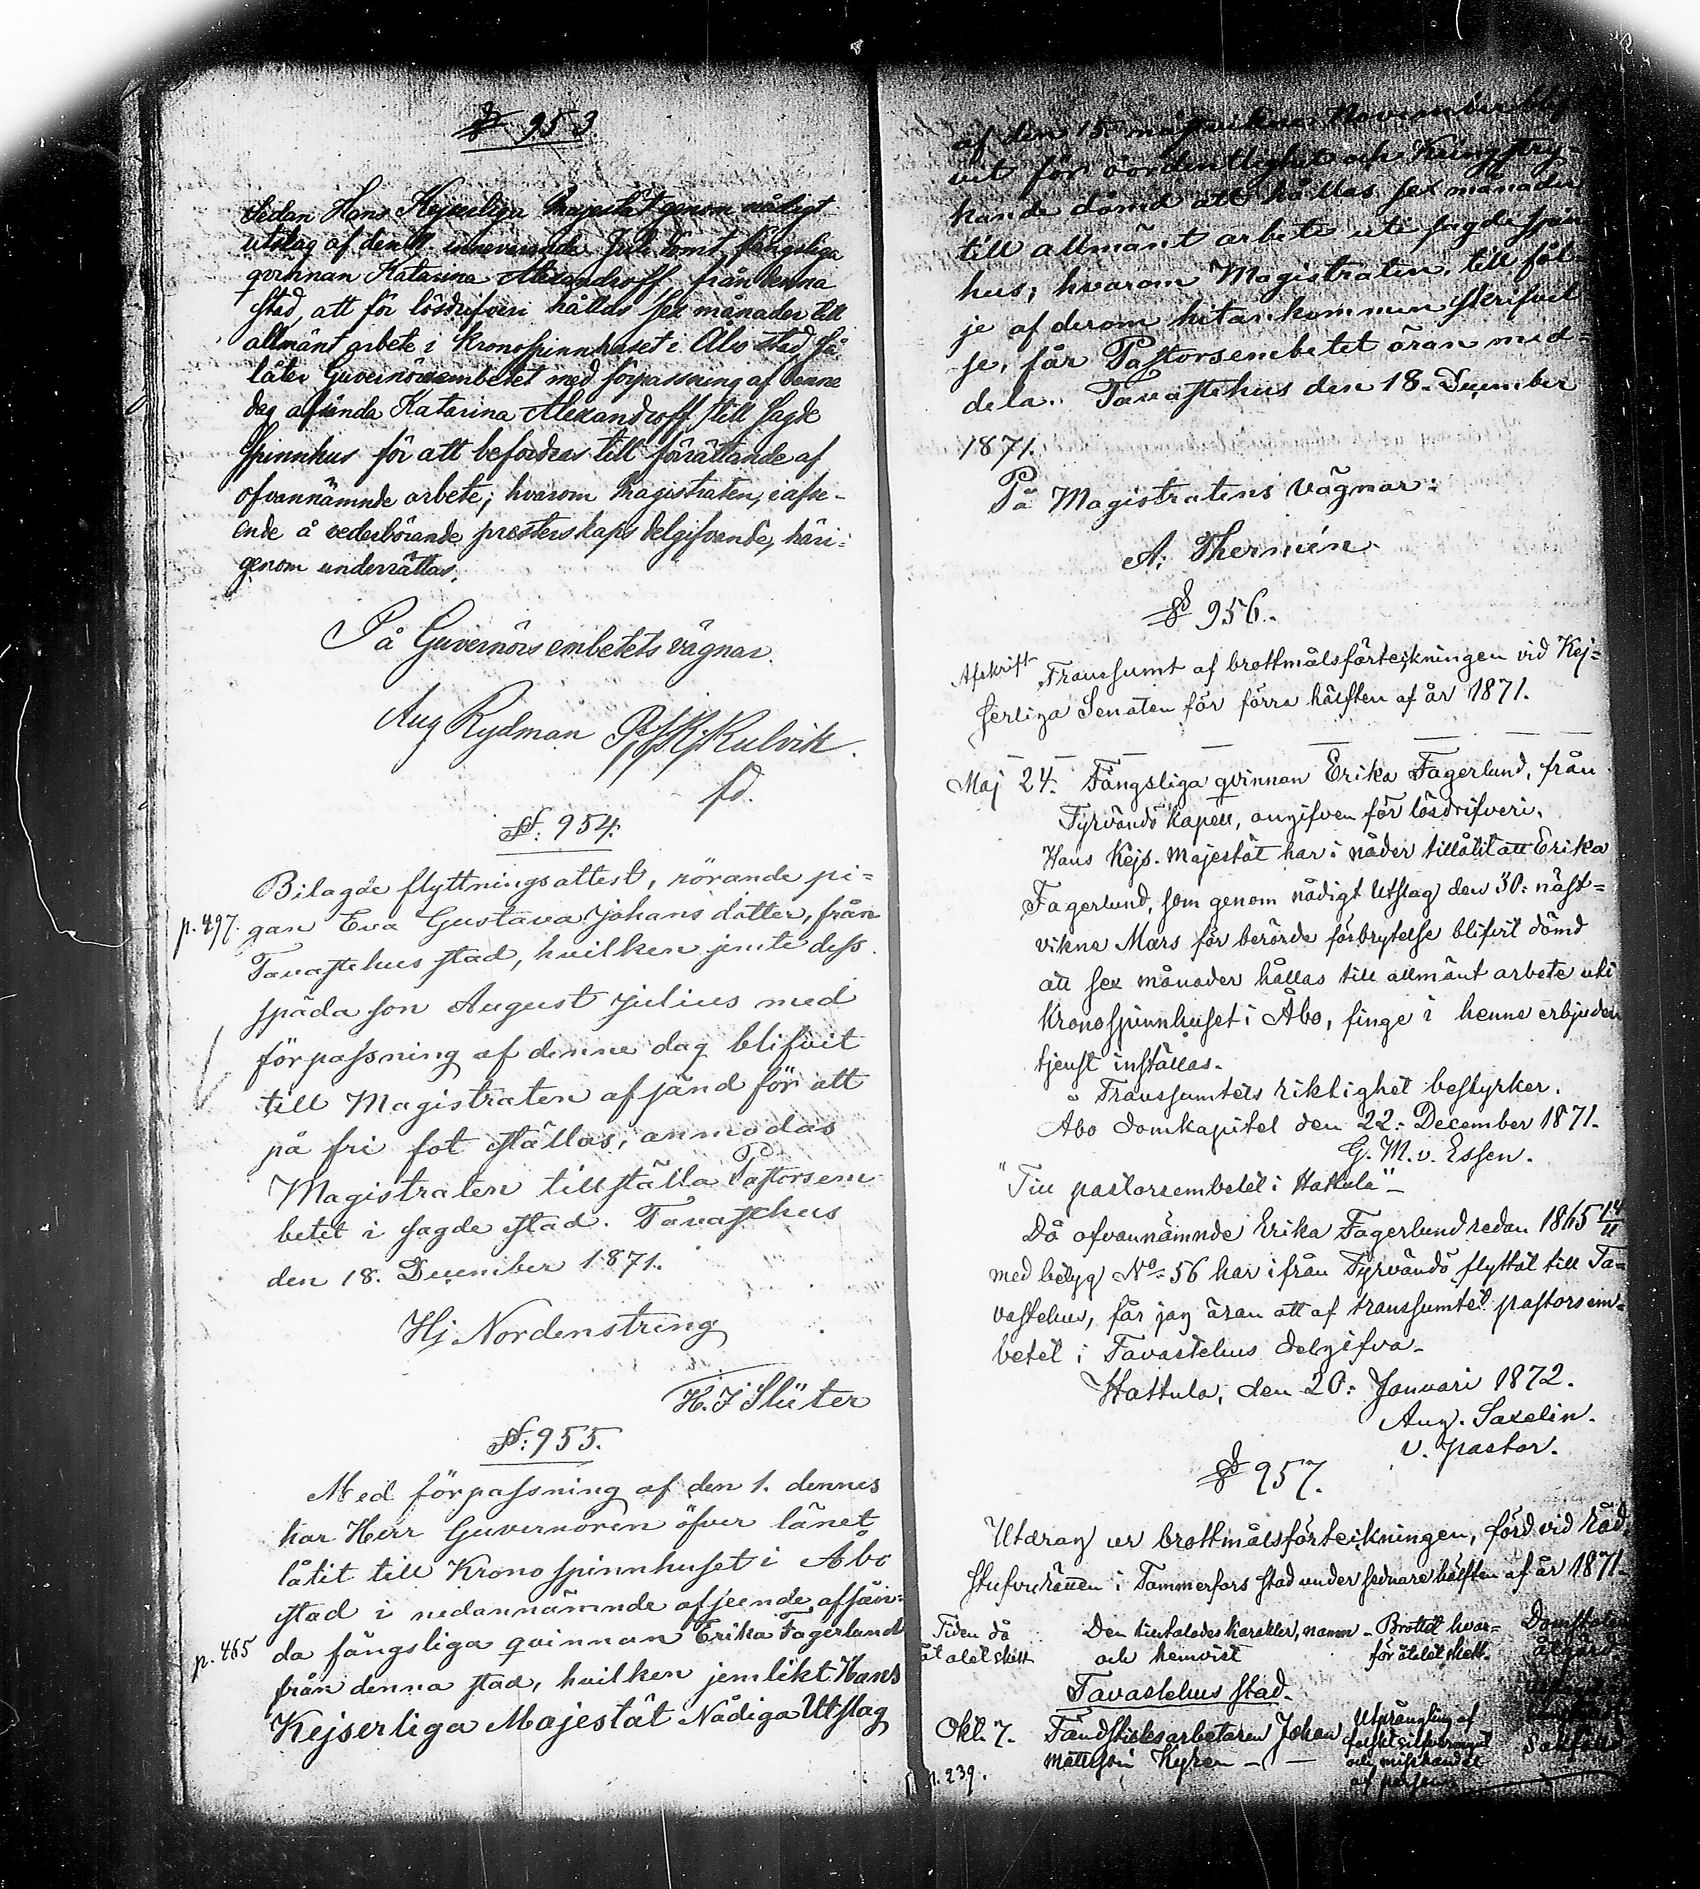 § 953
Sedan Hans Kejserliga Majestät genom nådigt
utslag af den innevarande dömt fängsliga
qvinnan Katarina Alexandroff från denna
stad, att för lösdrifveri hållas sex månader till
allmänt arbete i kronospinnhuset i Åbo stad, så
låter Guvernörsembetet med förpassning af denne
dag afsända Katarina Alexandroff till sagde
spinnhus för att befordras till förrättande af
ofvannämnde arbete; hvarom Magistraten, i afse-
ende å vederbörande presterskaps delgifvande, häri-
genom underrättas.
På Guvernörsembetets vägnar.
Aug Rydman Kulvik.
fd.
§: 954.
Bilagde flyttningsattest, rörande pi=
p. 497. gan Eva Gustava Johansdotter, från
Tavastehus stad, hvilken jemte dess
späda son August Julius med
förpassning af denne dag blifvit
till Magistraten afsänd för att
på fri fot ställas, anmodas
Magistraten tillställa Pastorsem-
betet i sagde stad. Tavastehus
den 18. December 1871.
Hj. Nordenstreng
H. J Slüter
§: 955.
Med förpassning af den 1. dennes
har Herr Guvernören öfver länet
låtit till Kronospinnhuset i Åbo
stad i nedannämnde afseende afsän=
p. 465 da fängsliga qvinnan Erika Fagerlund
från denna stad, hvilken jemlikt Hans
Kejserliga Majestät Nådiga Utslag
af den 15. November blif
vit för oordentlighet och kringstry=
kande dömd att hållas sex månader
till allmänt arbete uti sagde spin
hus; hvarom Magistraten, till föl=
je af derom hitankommen skrifvel
se, får Pastorsembetet äran med=
dela. Tavastehus den 18. December
1871.
På Magistratens vägnar:
A. Thermén.
§ 956.
Afskrift Transsumt af brottmålsförteckningen vid Kej=
serliga Senaten för förra hälften af år 1871.
Maj 24. Fängsliga qvinnan Erika Fagerlund, från
Tyrvändö kapell, angifven för lösdrifveri.
Hans Kejs. Majestät har i nåder tillåtit att Erika
Fagerlund, som genom nådigt Utslag den 30: näst=
vikne Mars för berörde förbrytelse blifvit dömd
att sex månader hållas till allmänt arbete uti
kronospinnhuset i Åbo, finge i henne erbjuden
tjenst inställas.
Transsumtets riktighet bestyrker.
Åbo domkapitel den 22: December 1871.
G. M. v. Essen.
"Till pastorsembetet i Hattula" -
Då ofvannämnde Erika Fagerlund redan 1865 14/11
med betyg No: 56 har ifrån Tyrvändö flyttat till Ta=
vastehus, får jag äran att af transsumtet pastorsem=
betet i Tavastehus delgifva.
Hattula, den 20: Januari 1872.
Aug. Saxelin.
v. pastor.
§ 957.
Utdrag ur brottmålsförteckningen, förd vid Råd=
stufvurätten i Tammerfors stad under sednare hälften af år 1871.
Tiden då Den tilltalades karakter, namn - Brottet hvar= Domstolens
åtalet skett och hemvist för åtalet skett. åtgärd.
Tavastehus stad.
Okt. 7. Tändsticksarbetaren Johan Utprångling af
Mattsson Kyrén - - falskt silfvermynt
och misshandel
p. 239. af person